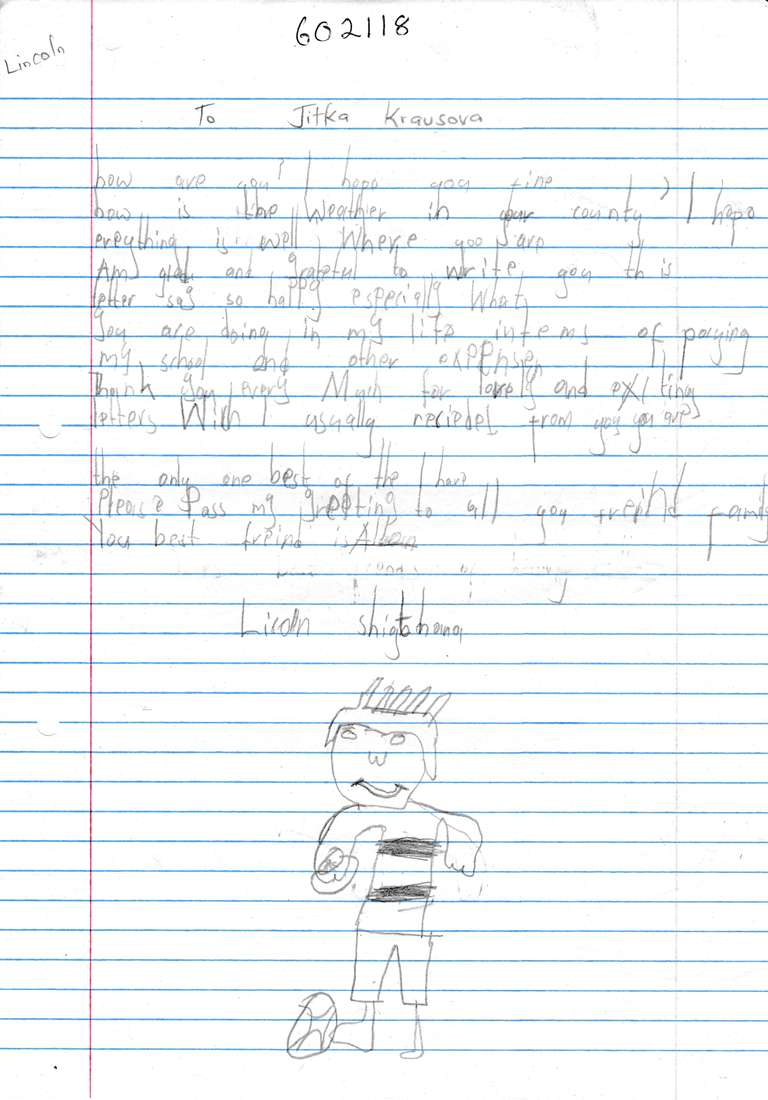 602118
Lincoln
To Jitka Krausova
how are you? I hope you fine
how is the Weather in your county? I hope
ereything is well Where you are
Am glad and grateful to write you this
letter say so happy especially What
you are doing in my life intems of paying
my school and other expensen
Thank you every Much for lovely and exiting
letters With I usually recieded from you you are
the only one best of the I have
Please Pass my greeting to all you freind family
You best freind is
Licoln